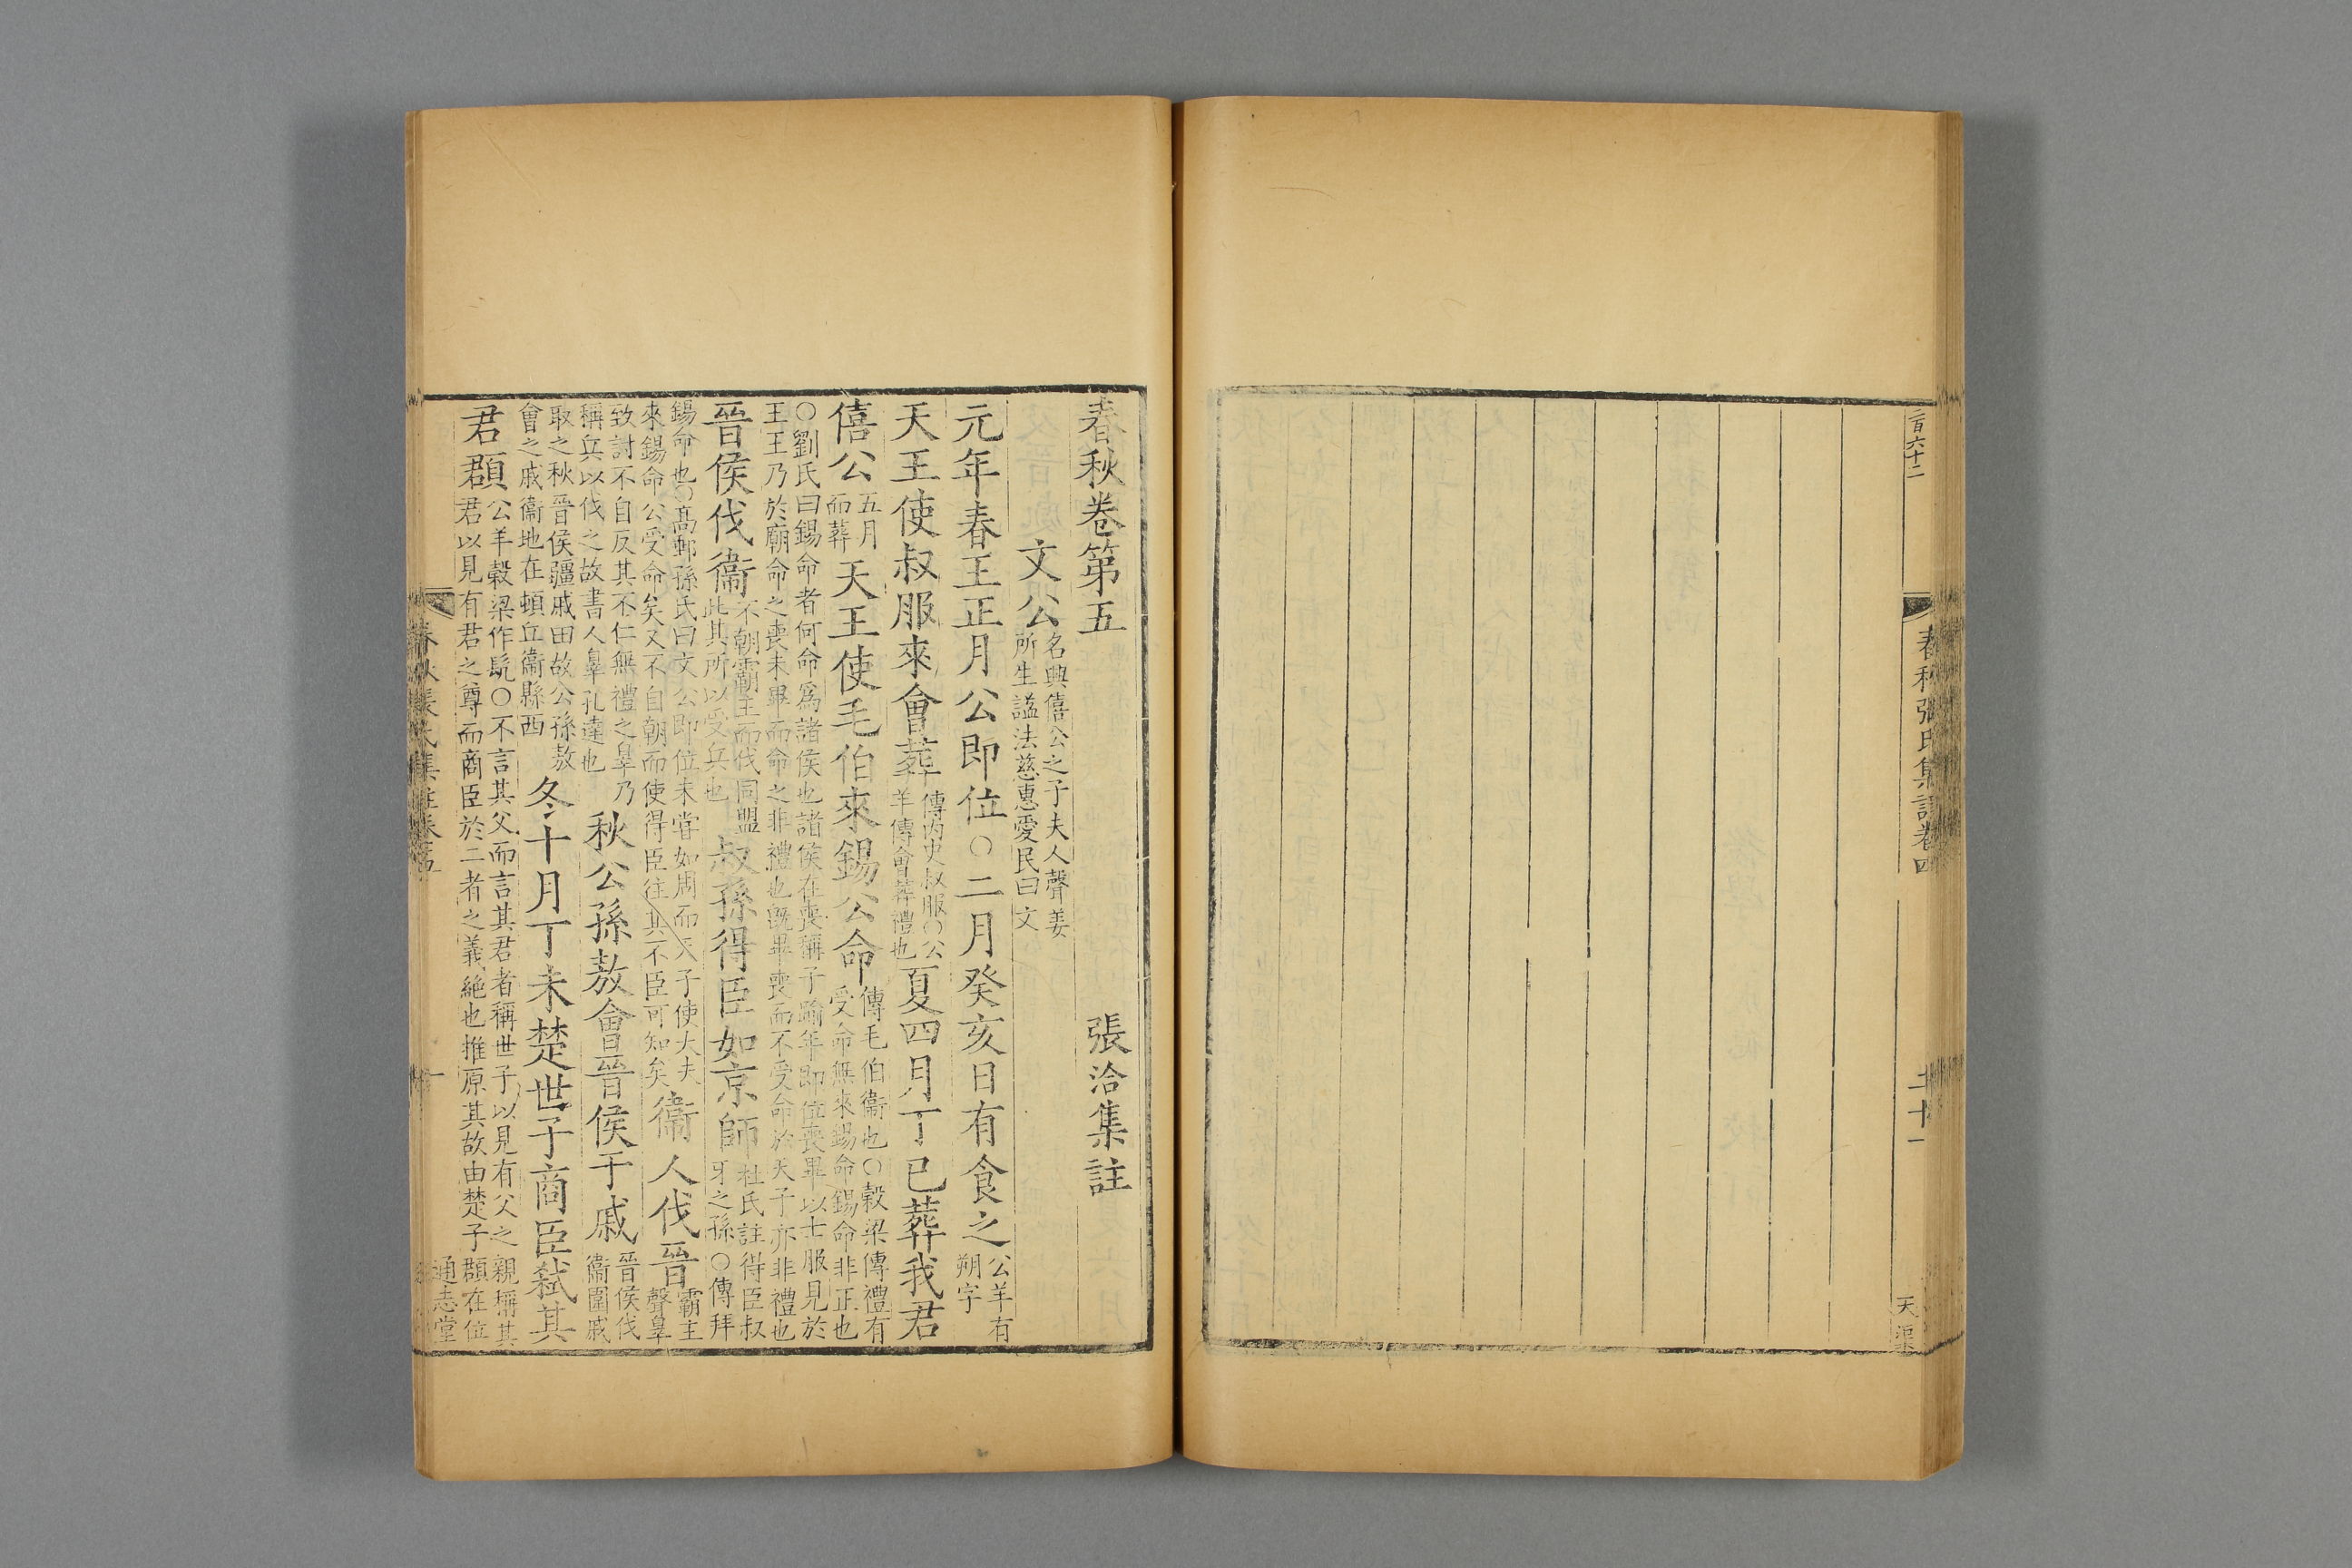 二百六十二
春秋張氏集註卷四
二十一
天渠
春秋卷第五
張洽集註
文公
名興僖公之子夫人聲姜
所生諡法慈惠愛民曰文
元年春王正月公即位○二月癸亥日有食之
公羊有
朔字
天王使叔服來會葬
傳內史叔服○公
羊傳會葬禮也
夏四月丁巳葬我君
僖公
五月
而葬
天王使毛伯來錫公命
傳毛伯衞也○穀梁傳禮有
受命無來錫命錫命非正也
○劉氏曰錫命者何命爲諸侯也諸侯在喪稱子踰年即位喪畢以士服見於
王王乃於廟命之喪未畢而命之非禮也旣畢喪而不受命於天子亦非禮也
晉侯伐衞
不朝霸主而伐同盟
此其所以受兵也
叔孫得臣如京師
杜氏註得臣叔
牙之孫○傳拜
錫命也○髙郵孫氏曰文公即位未嘗如周而天子使大夫
來錫命公受命矣又不自朝而使得臣往其不臣可知矣
衞人伐晉
霸主
聲辠
致討不自反其不仁無禮之辠乃
稱兵以伐之故書人辠孔達也
秋公孫敖會晉侯于戚
晉侯伐
衞圍戚
取之秋晉侯疆戚田故公孫敖
會之戚衞地在頓丘衞縣西
冬十月丁未楚世子商臣弑其
君頵
公羊穀梁作髡○不言其父而言其君者稱世子以見有父之親稱其
君以見有君之尊而商臣於二者之義絶也推原其故由楚子頵在位
春秋張氏集註卷第五
一
通志堂